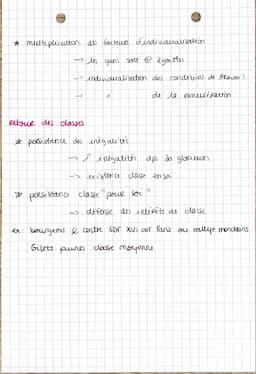 * multiplication des facteurs d'individualisation
-> les gens sont + égoïstes
-> individualisation des conditions de travail
-> " de la rémunération
Retour des classes
* persistance des inégalités
-> ↗ inégalités dps 30 glorieuses
-> existence classe en soi
* persistance classe "pour soi"
-> défense des intérêts de classe
ex : bourgeois & centre SDF XVI arr Paris ou rallye mondains
Gilets jaunes classe moyenne